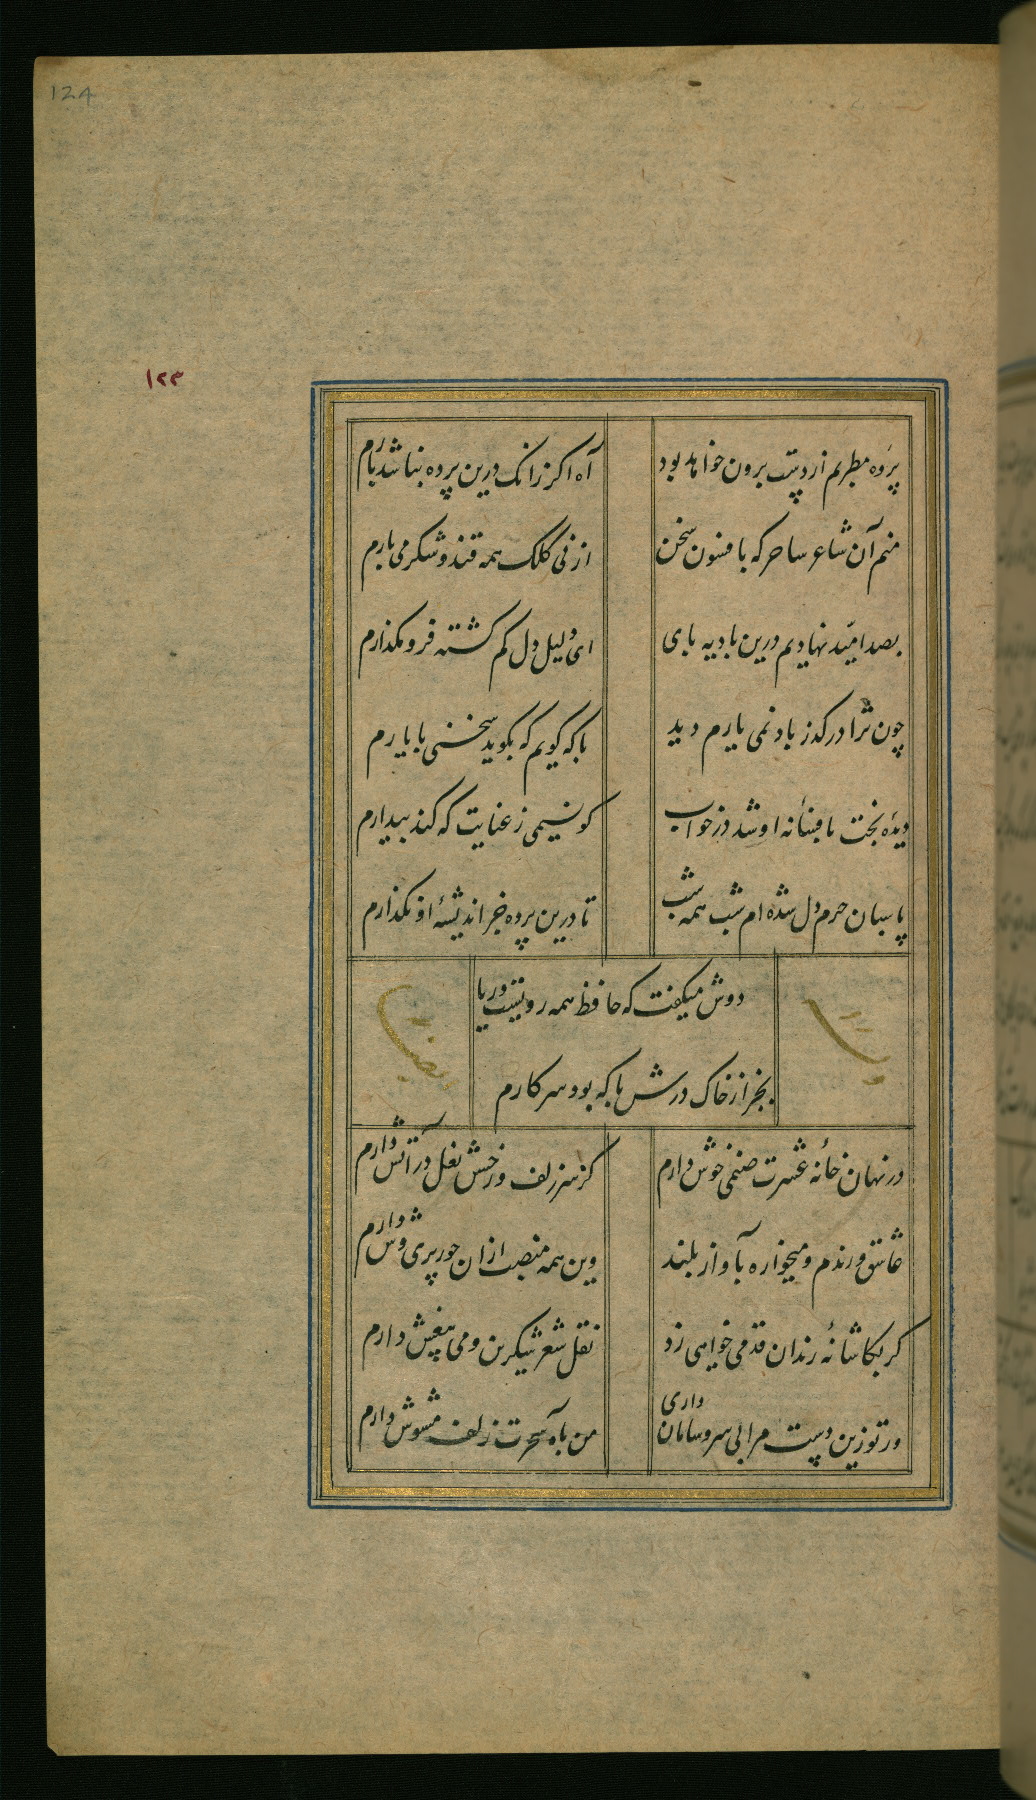 124
۱۲۳
پرده مطربم از دست برون خواهد بود
آه اکر زانک درین پرده نباشد بارم
منم آن شاعر ساحر که بافسون سخن
از نی کلک همه قند و شکر می بارم
بصد امید نهادیم درین بادیه پای
ای دلیل دل کم کشته فرو مکذارم
چون ترا در کذر باد نمی یارم دید
با که کویم که بکوید سخنی با یارم
دیده بخت بافسانه او شد در خواب
کو نسیمی ز عنایت که کند بیدارم
پاسبان حرم دل شده ام شب همه شب
تا درین پرده جز اندیشه او نکذارم
دوش میکفت که حافظ همه رویست و ریا
بجز از خاک درش با که بود سر کارم
در نهان خانه عشرت صنمی خوش دارم
کز سر زلف و رخش نعل در آتش دارم
عاشق و رندم و میخواره بآواز بلند
وین همه منصب از آن حور پری وش دارم
کر بکاشانه رندان قدمی خواهی زد
نقل شعر شکرین و می بیغش دارم
ور تو زین دست مرا بی سر و سامان داری
من بآه سحرت زلف مشوش دارم